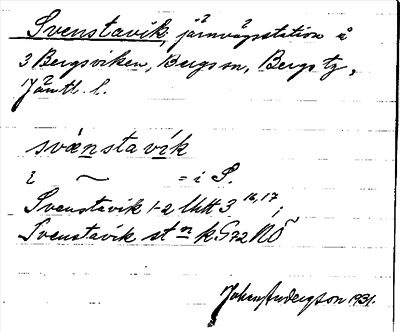 Svenstavik, järnvägsstation å
3 Bergsviken, Bergs sn, Bergs tg,
Jämtl. l.
svänstavík
i ~ = i S.
Svenstavik 1-2 Uhtt 3 16,17;
Svenstavik st:n k. G72 NÖ
Johan Andersson 1931.